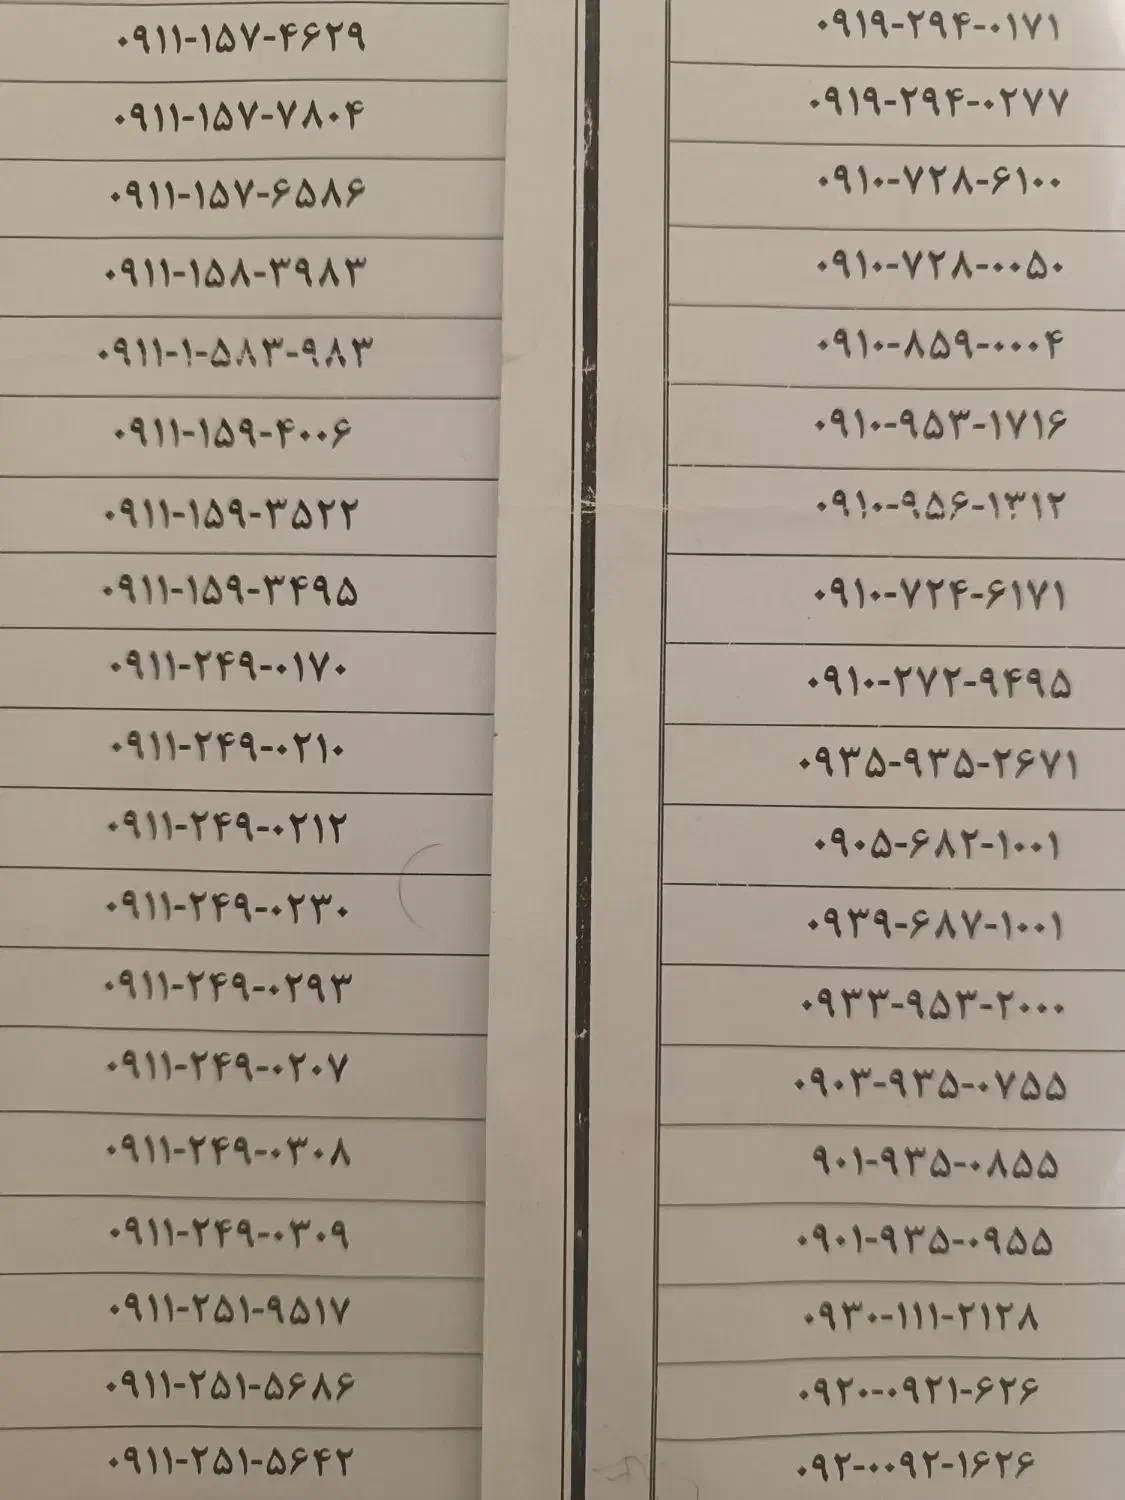 ۰۹۱۱-۱۵۷-۴۶۲۹
۰۹۱۱-۱۵۷-۷۸۰۴
۰۹۱۱-۱۵۷-۶۵۸۶
۰۹۱۱-۱۵۸-۳۹۸۳
۰۹۱۱-۱-۵۸۳-۹۸۳
۰۹۱۱-۱۵۹-۴۰۰۶
۰۹۱۱-۱۵۹-۳۵۲۲
۰۹۱۱-۱۵۹-۳۴۹۵
۰۹۱۱-۲۴۹-۰۱۷۰
۰۹۱۱-۲۴۹-۰۲۱۰
۰۹۱۱-۲۴۹-۰۲۱۲
۰۹۱۱-۲۴۹-۰۲۳۰
۰۹۱۱-۲۴۹-۰۲۹۳
۰۹۱۱-۲۴۹-۰۲۰۷
۰۹۱۱-۲۴۹-۰۳۰۸
۰۹۱۱-۲۴۹-۰۳۰۹
۰۹۱۱-۲۵۱-۹۵۱۷
۰۹۱۱-۲۵۱-۵۶۸۶
۰۹۱۱-۲۵۱-۵۶۴۲
۰۹۱۹-۲۹۴-۰۱۷۱
۰۹۱۹-۲۹۴-۰۲۷۷
۰۹۱۰-۷۲۸-۶۱۰۰
۰۹۱۰-۷۲۸-۰۰۵۰
۰۹۱۰-۸۵۹-۰۰۰۴
۰۹۱۰-۹۵۳-۱۷۱۶
۰۹۱۰-۹۵۶-۱۳۱۲
۰۹۱۰-۷۲۴-۶۱۷۱
۰۹۱۰-۲۷۲-۹۴۹۵
۰۹۳۵-۹۳۵-۲۶۷۱
۰۹۰۵-۶۸۲-۱۰۰۱
۰۹۳۹-۶۸۷-۱۰۰۱
۰۹۳۳-۹۵۳-۲۰۰۰
۰۹۰۳-۹۳۵-۰۷۵۵
۹۰۱-۹۳۵-۰۸۵۵
۰۹۰۱-۹۳۵-۰۹۵۵
۰۹۳۰-۱۱۱-۲۱۲۸
۰۹۲۰-۰۹۲۱-۶۲۶
۰۹۲-۰۰۹۲-۱۶۲۶